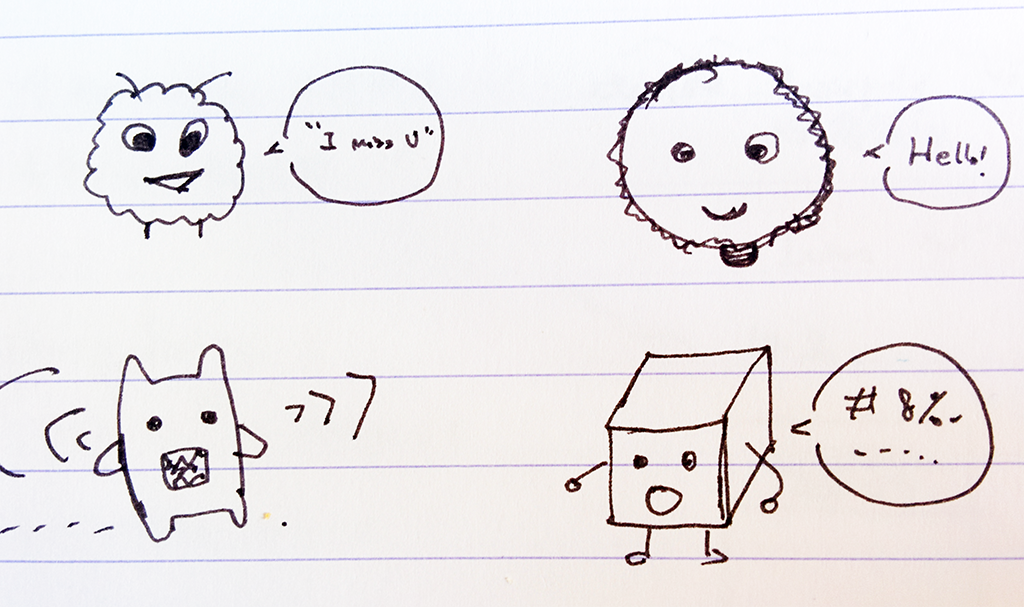 "I miss U"
Hello!
# 8%-
-----..